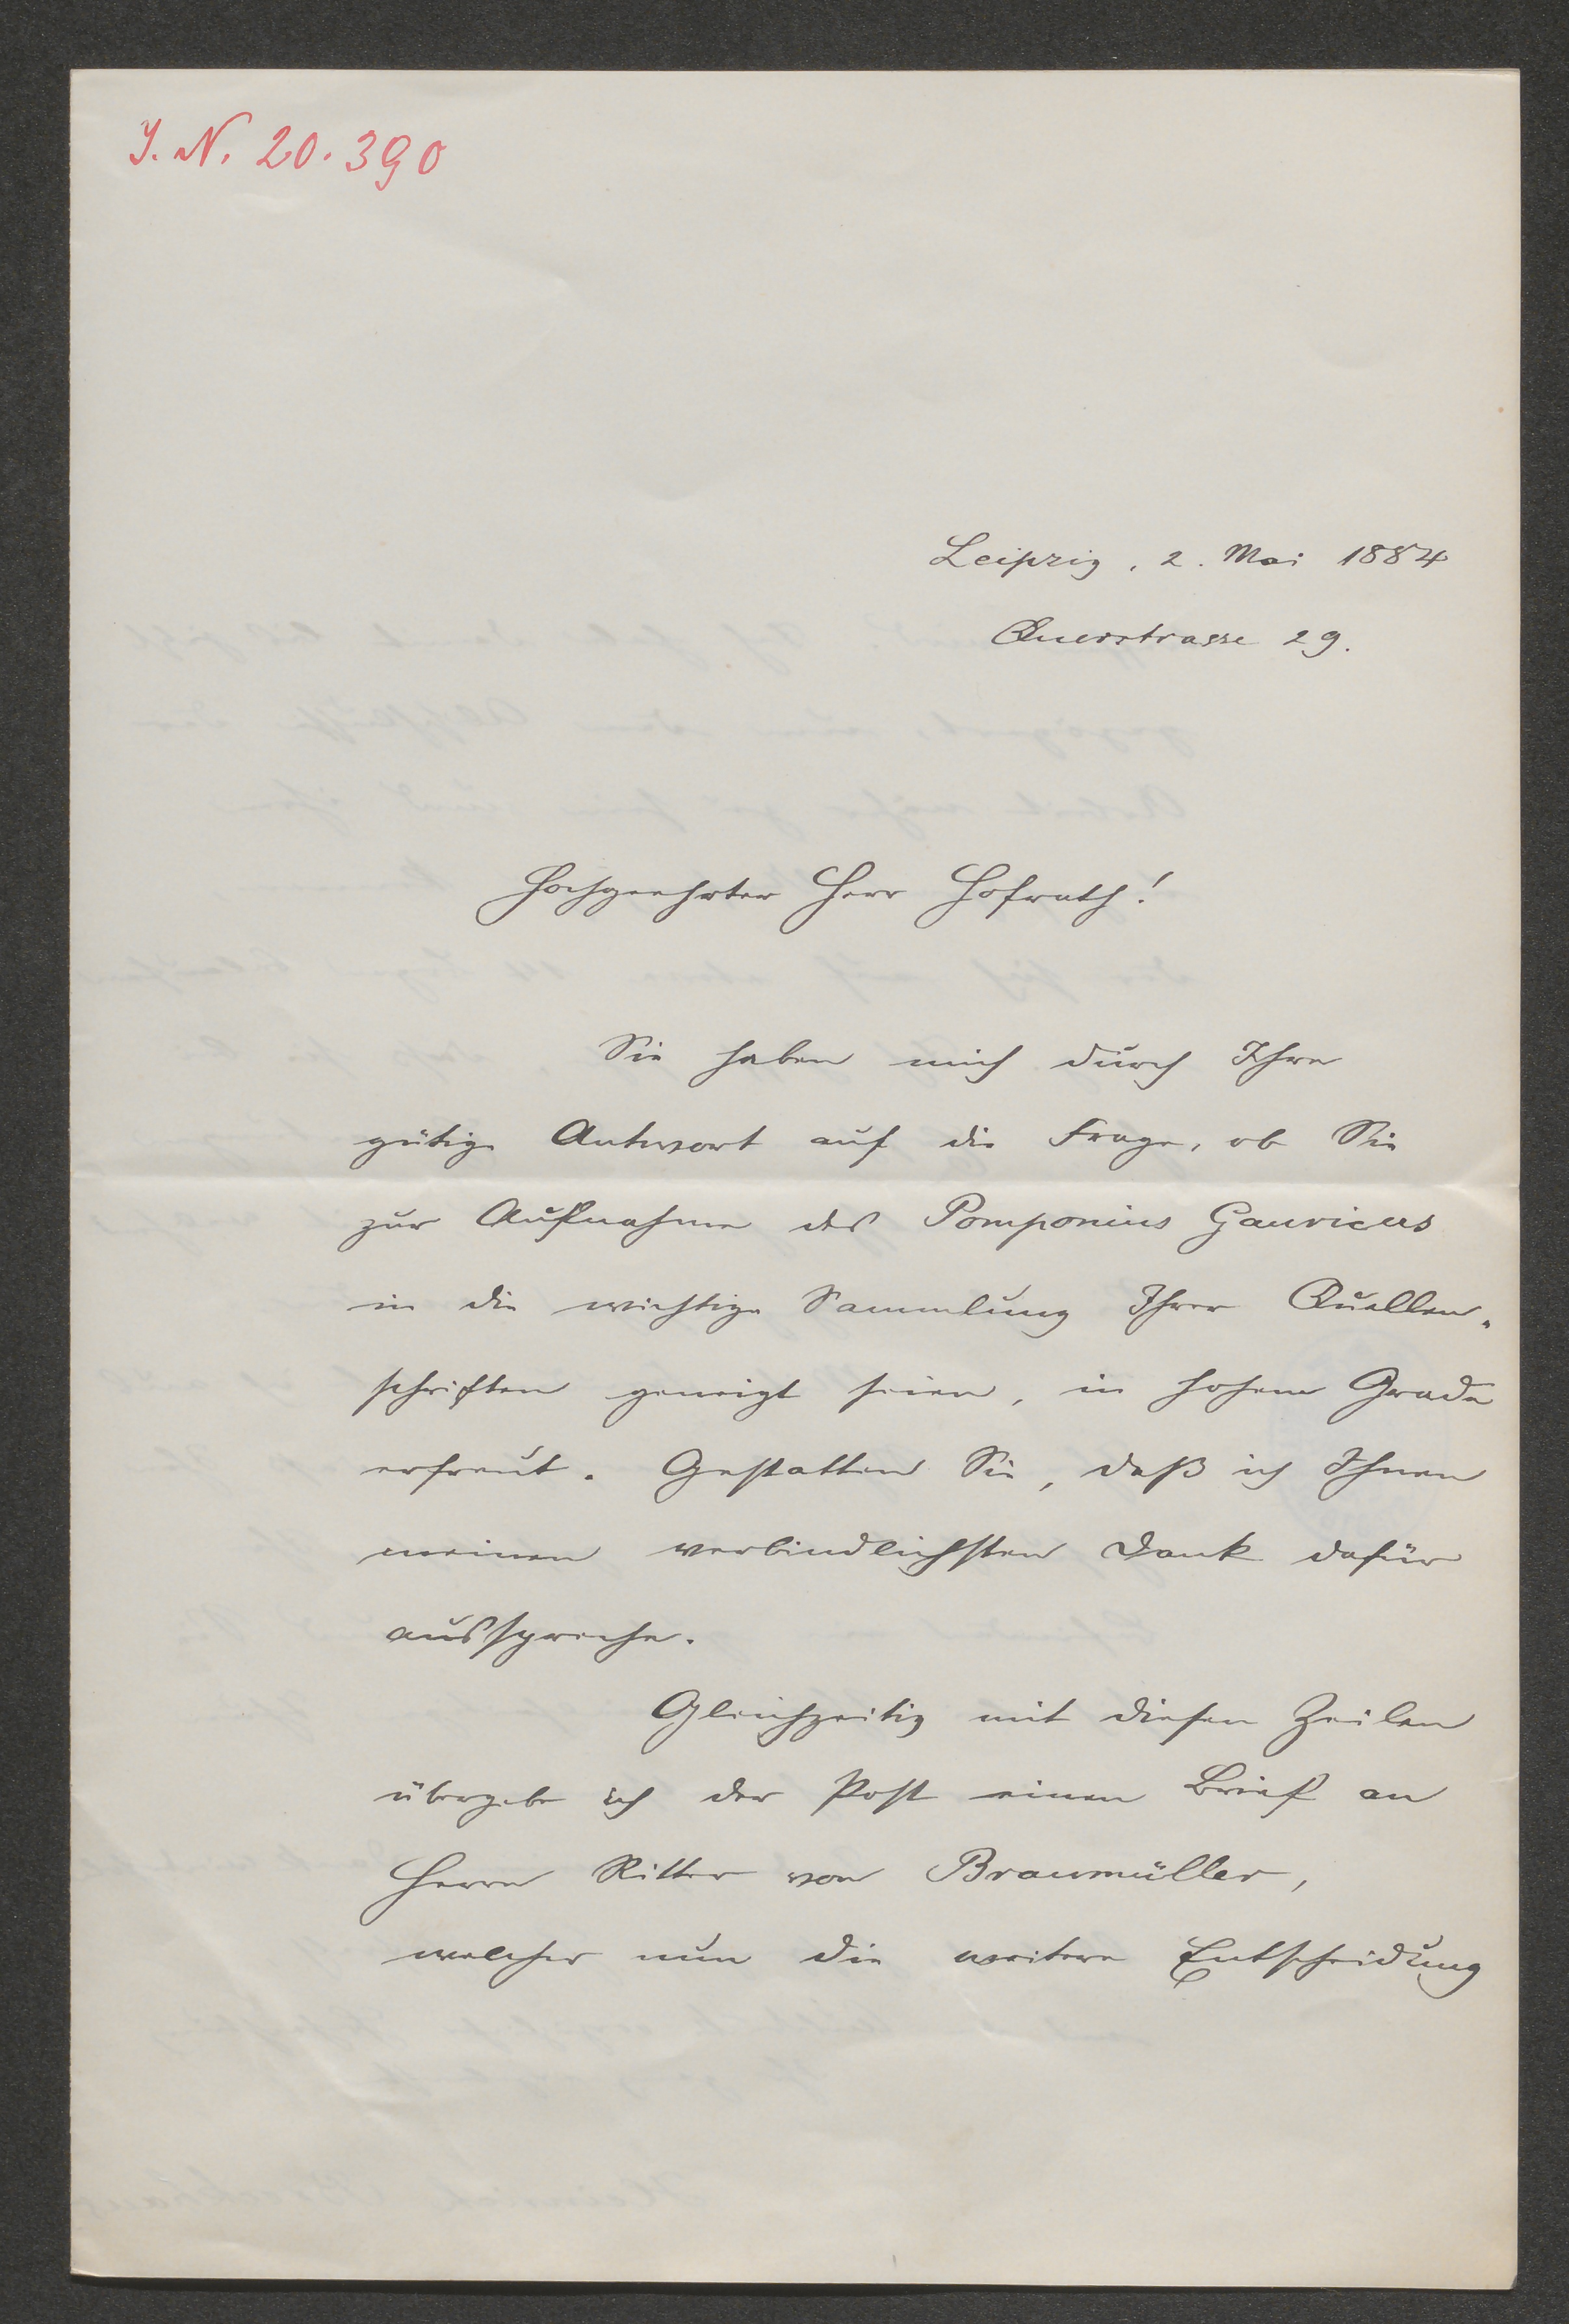 J. N. 20.390
Leipzig, 2. Mai 1884
Querstrasse 29.
Hochgeehrter Herr Hofrath!
Sie haben mich durch Ihre
gütige Antwort auf die Frage, ob Sie
zur Aufnahme des Pomponius Gauricus
in die wichtige Sammlung Ihrer Quellen-
schriften geneigt seien, in hohem Grade
erfreut. Gestatten Sie, daß ich Ihnen
meinen verbindlichsten Dank dafür
ausspreche.
Gleichzeitig mit diesen Zeilen
übergebe ich der Post einen Brief an
Herrn Ritter von Braumüller,
welcher nun die weitere Entscheidung